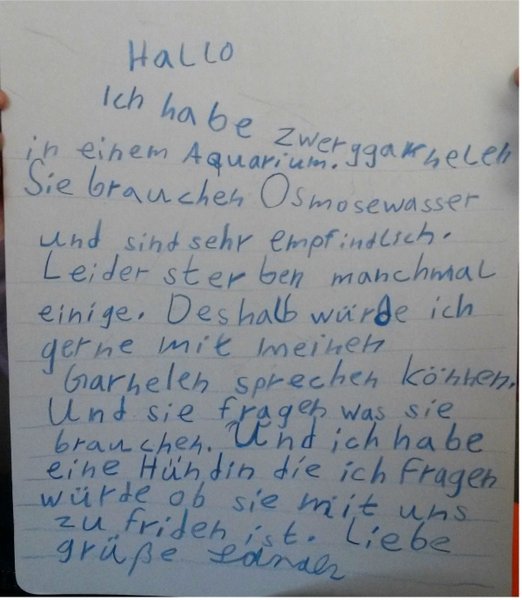 Hallo
Ich habe zwerggarnelen
in einem Aquarium.
Sie brauchen Osmosewasser
und sind sehr empfindlich.
Leider sterben manchmal
einige. Deshalb würde ich
gerne mit meinen
Garnelen sprechen können.
Und sie fragen was sie
brauchen. Und ich habe
eine Hündin die ich fragen
würde ob sie mit uns
zu friden ist. Liebe
grüße